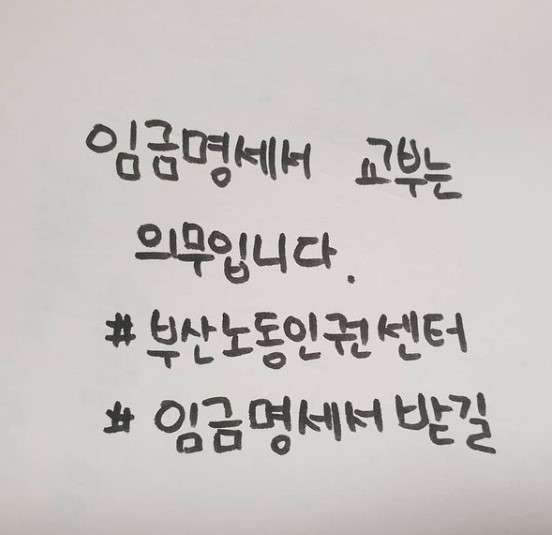 임금명세서 교부는
의무입니다.
# 부산노동인권센터
# 임금명세서받길